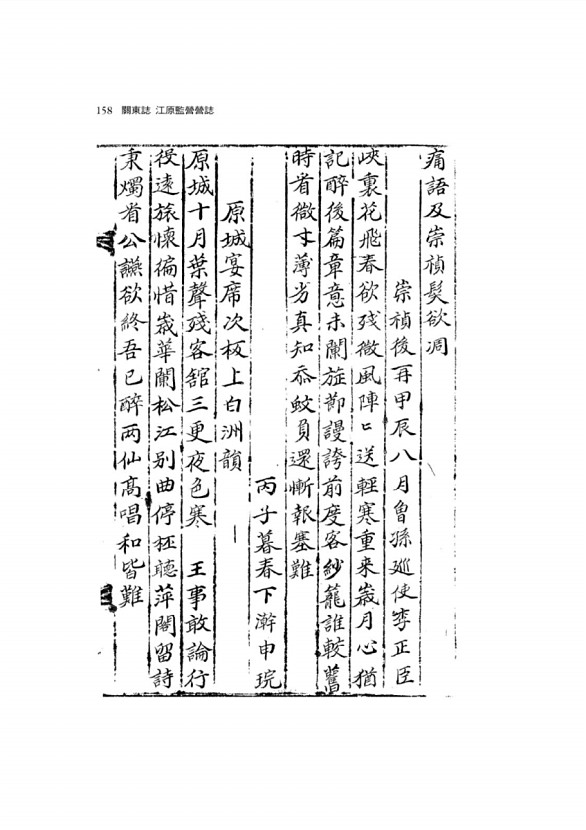 158 關東誌 江原監營營誌
痛語及崇禎髮欲凋
崇禎後再甲辰八月曾孫巡使李正臣
峽裏花飛春欲残微風陣〻送輕寒重來歲月心猶
記醉後篇章意未闌旋節謾誇前度客紗籠誰較舊
時看微才薄劣真知忝蚊負還慚報塞難
丙子暮春下澣申琓
原城宴席次板上白洲韻
原城十月葉聲殘客舘三更夜色寒 王事敢論行
役遠旅懷徧惜歲華闌松江別曲停杯聽萍閣留詩
秉燭看公讌欲終吾已醉兩仙高唱和皆難